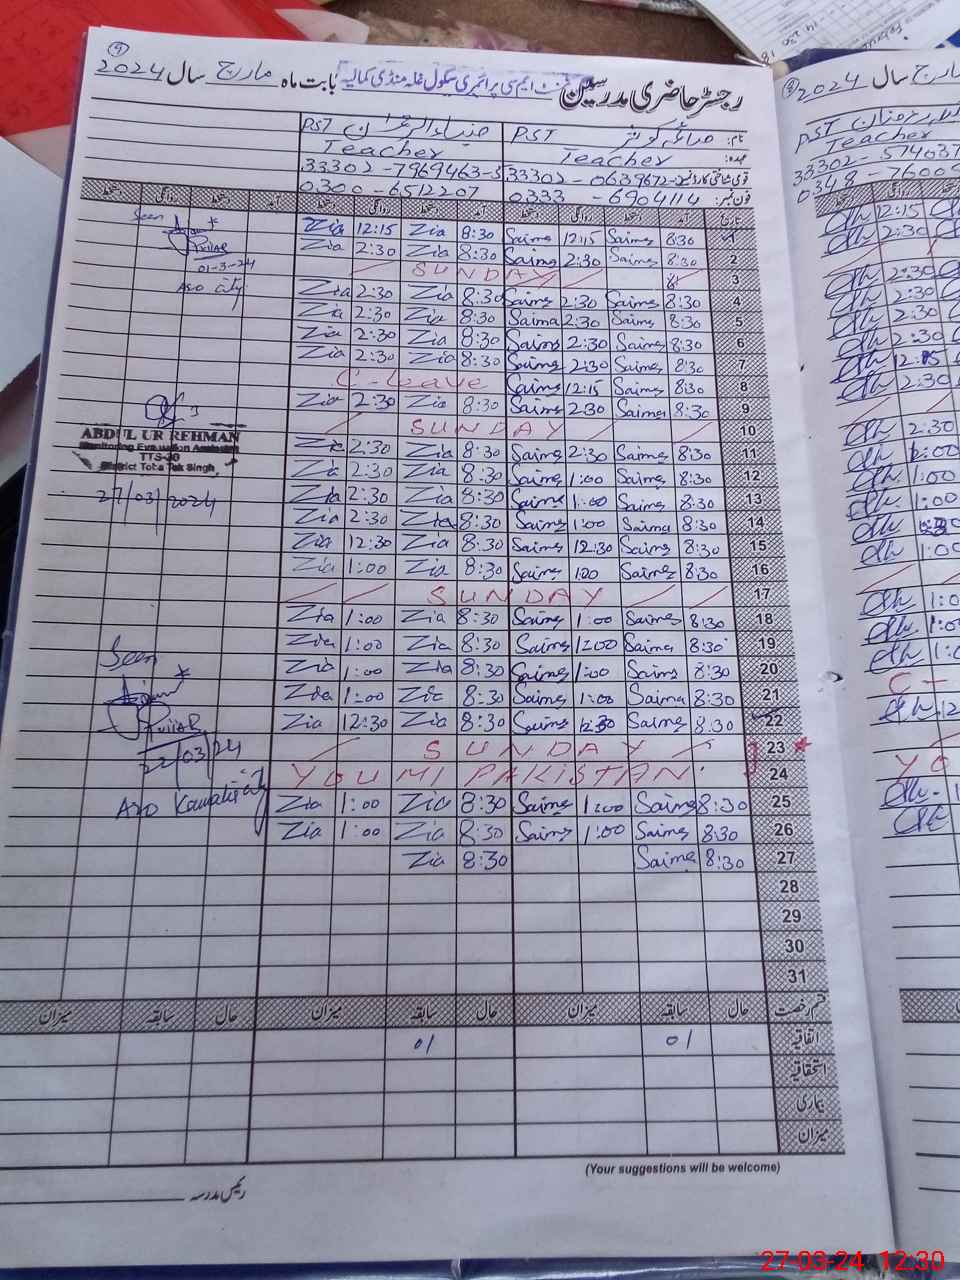 رجسٹر حاضری مدرسین گورنمنٹ ایم سی پرائمری سکول غلہ منڈی کمالیہ بابت ماہ مارچ سال 2024
9
نام: صائمہ کوثر PST ضیاء الرحمٰن PST
عہدہ: Teacher Teacher
قومی شناختی کارڈ نمبر 33302-0639672- 33302-7969463-5
فون نمبر: 0333-6904114 0300-6512207
تاریخ آمد دستخط روانگی دستخط آمد دستخط روانگی دستخط آمد دستخط روانگی دستخط
1 8:30 Saima 12:15 Saima 8:30 Zia 12:15 Zia
2 8:30 Saima 2:30 Saima 8:30 Zia 2:30 Zia
3 SUNDAY
4 8:30 Saima 2:30 Saima 8:30 Zia 2:30 Zia
5 8:30 Saima 2:30 Saima 8:30 Zia 2:30 Zia
6 8:30 Saima 2:30 Saima 8:30 Zia 2:30 Zia
7 8:30 Saima 2:30 Saima 8:30 Zia 2:30 Zia
8 8:30 Saima 12:15 Saima C-leave
9 8:30 Saima 2:30 Saima 8:30 Zia 2:30 Zia
10 SUNDAY
11 8:30 Saima 2:30 Saima 8:30 Zia 2:30 Zia
12 8:30 Saima 1:00 Saima 8:30 Zia 2:30 Zia
13 8:30 Saima 1:00 Saima 8:30 Zia 2:30 Zia
14 8:30 Saima 1:00 Saima 8:30 Zia 2:30 Zia
15 8:30 Saima 12:30 Saima 8:30 Zia 12:30 Zia
16 8:30 Saima 1:00 Saima 8:30 Zia 1:00 Zia
17 SUNDAY
18 8:30 Saima 1:00 Saima 8:30 Zia 1:00 Zia
19 8:30 Saima 1:00 Saima 8:30 Zia 1:00 Zia
20 8:30 Saima 1:00 Saima 8:30 Zia 1:00 Zia
21 8:30 Saima 1:00 Saima 8:30 Zia 1:00 Zia
22 8:30 Saima 12:30 Saima 8:30 Zia 12:30 Zia
23 SUNDAY
24 YOUMI PAKISTAN
25 8:30 Saima 1:00 Saima 8:30 Zia 1:00 Zia
26 8:30 Saima 1:00 Saima 8:30 Zia 1:00 Zia
27 8:30 Saima 8:30 Zia
28
29
30
31
قسم رخصت حال سابقہ میزان حال سابقہ میزان حال سابقہ میزان
اتفاقیہ 01 01
استحقاقیہ
بیماری
میزان
(Your suggestions will be welcome)
رئیس مدرسہ
Seen
01-3-24
ABDUL UR REHMAN
Monitoring Evaluation Assistant
District Toba Tek Singh
27/03/2024
Seen
22/03/24
سال 2024
PST
Teacher
33302-574037
0348-7600
12:15
2:30
2:30
2:30
2:30
2:30
12:15
2:30
2:30
1:00
1:00
1:00
1:0
1:0
1:0
C-
12
YO
27-03-24 12:30